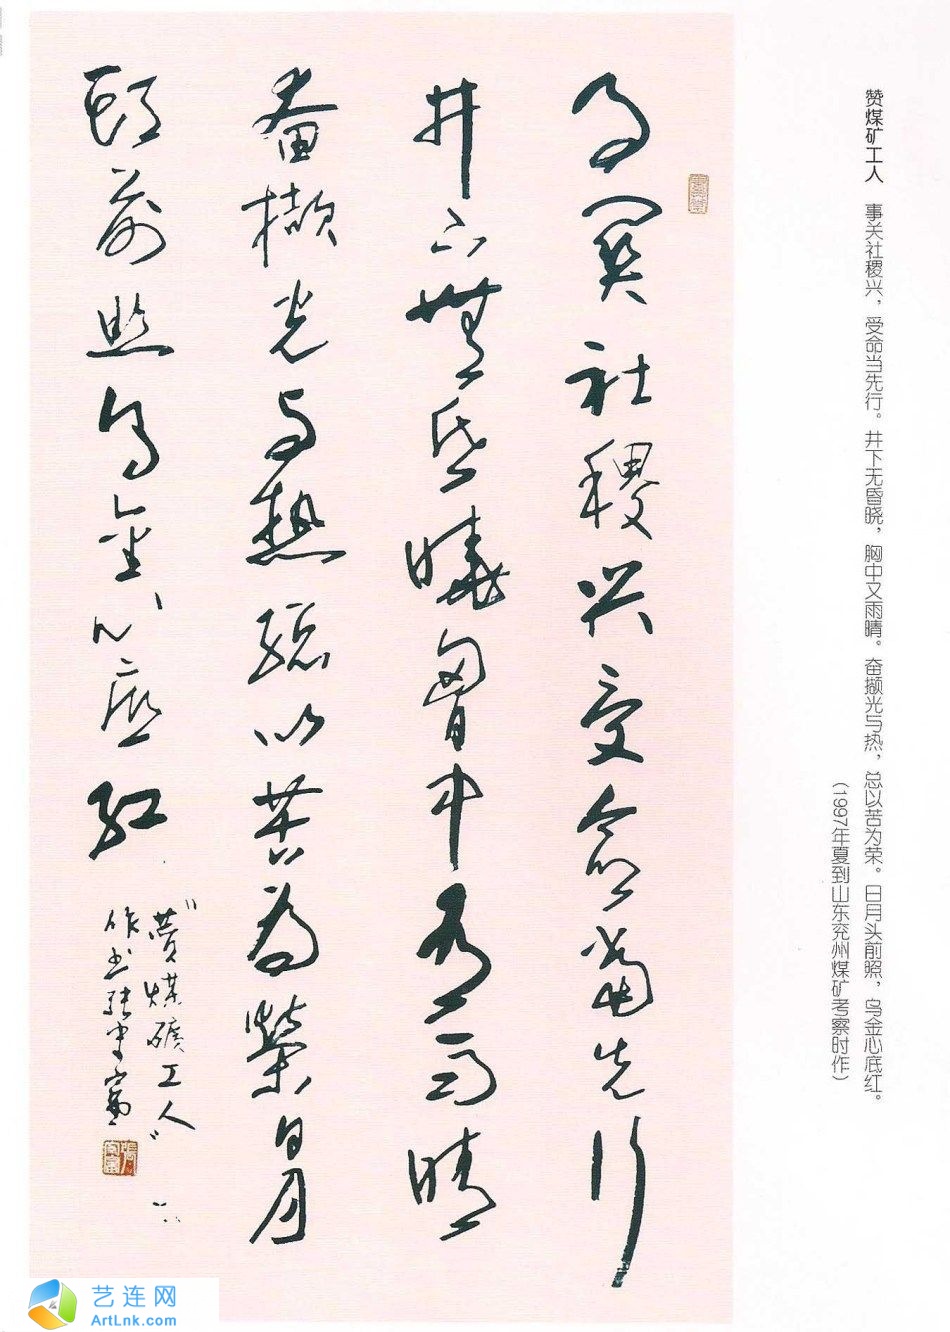 赞煤矿工人 事关社稷兴，受命当先行。井下无昏晓，胸中又雨晴。奋撷光与热，总以苦为荣。日月头前照，乌金心底红。
（1997年夏到山东兖州煤矿考察时作）
事關社稷興受命當先行
井下無昏曉胷中有雨晴
奮擷光与熱總以苦為榮日月
頭前照烏金心底紅
“贊煤礦工人”
作书張守富
艺连网
ArtLnk.com